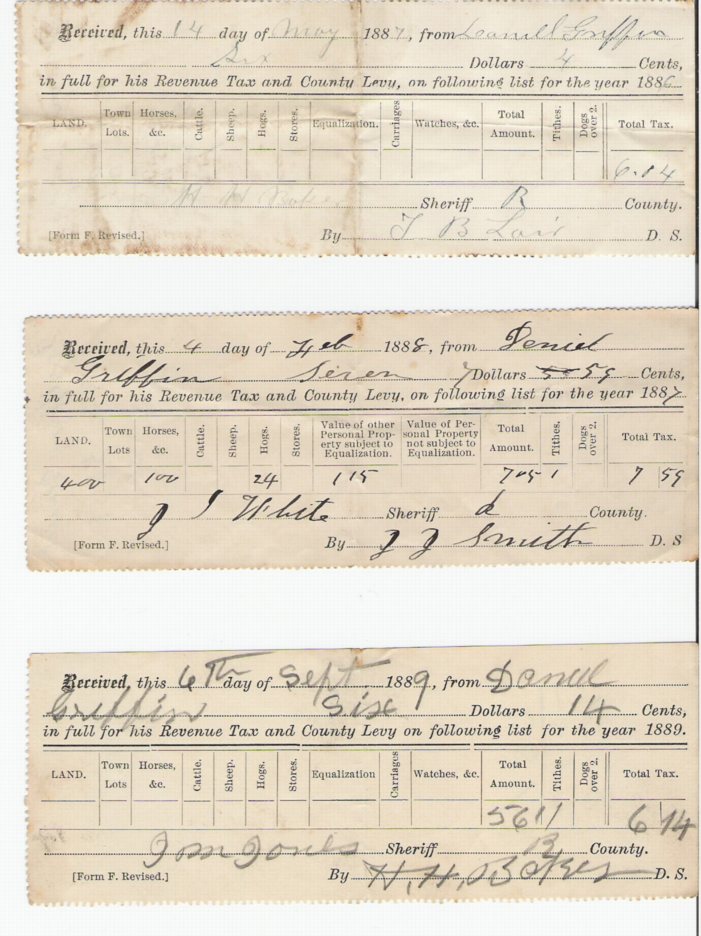 Received, this 14 day of May 1887, from Daniel Griffin
Six Dollars 4 Cents,
in full for his Revenue Tax and County Levy, on following list for the year 1886
LAND. Town Lots. Horses, &c. Cattle. Sheep. Hogs. Stores. Equalization. Carriages Watches, &c. Total Amount. Tithes. Dogs over 2. Total Tax.
6.04
Sheriff R County.
[Form F. Revised.] By T B Lair D. S.
Received, this 4 day of Feb 1888, from Deniel
Greffin Seven 7 Dollars 59 Cents,
in full for his Revenue Tax and County Levy, on following list for the year 1887
LAND. Town Lots Horses, &c. Cattle. Sheep. Hogs. Stores. Value of other Personal Property subject to Equalization. Value of Personal Property not subject to Equalization. Total Amount. Tithes. Dogs over 2. Total Tax.
400 100 24 115 705 1 7 59
J J White Sheriff County.
[Form F. Revised.] By J J Smith D. S
Received, this 6Th day of Sept 1889, from Daniel
Greffin Six Dollars 14 Cents,
in full for his Revenue Tax and County Levy on following list for the year 1889.
LAND. Town Lots Horses, &c. Cattle. Sheep. Hogs. Stores. Equalization Carriages Watches, &c. Total Amount. Tithes. Dogs over 2. Total Tax.
561 1 6 14
Tom Jones Sheriff R County.
[Form F. Revised.] By H. H. Baker D. S.